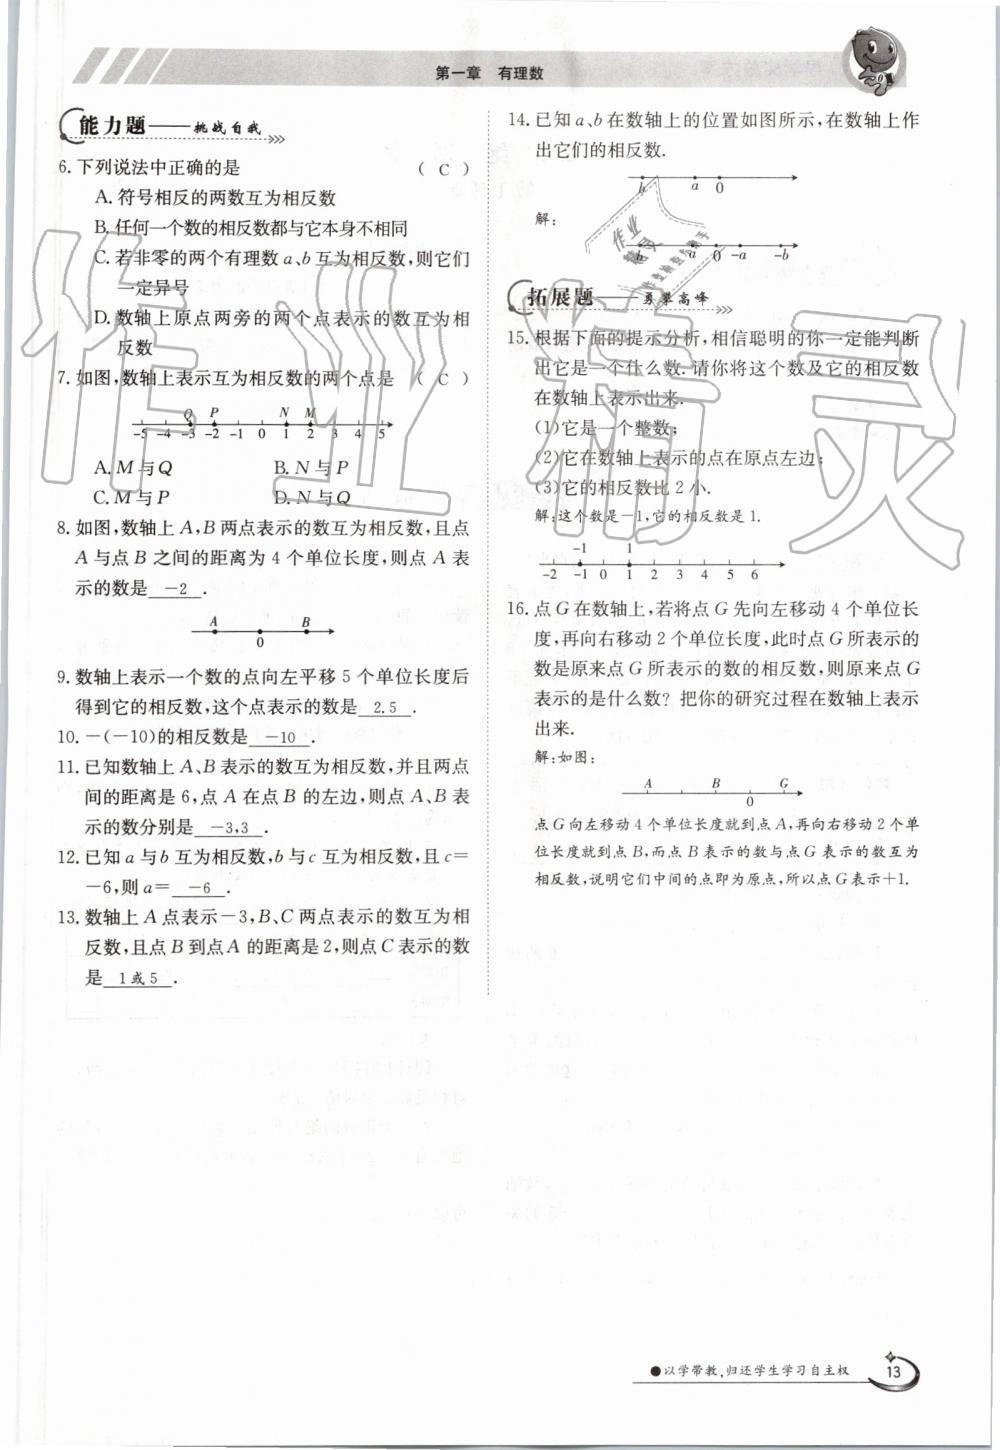 第一章 有理数
能力题——挑战自我
6. 下列说法中正确的是 ( C )
A. 符号相反的两数互为相反数
B. 任何一个数的相反数都与它本身不相同
C. 若非零的两个有理数a、b互为相反数,则它们
一定异号
D. 数轴上原点两旁的两个点表示的数互为相
反数
7. 如图,数轴上表示互为相反数的两个点是 ( C )
Q P N M
-5 -4 -3 -2 -1 0 1 2 3 4 5
A. M与Q B. N与P
C. M与P D. N与Q
8. 如图,数轴上A,B两点表示的数互为相反数,且点
A与点B之间的距离为4个单位长度,则点A表
示的数是 -2 .
A B
0
9. 数轴上表示一个数的点向左平移5个单位长度后
得到它的相反数,这个点表示的数是 2.5 .
10. -(-10)的相反数是 -10 .
11. 已知数轴上A、B表示的数互为相反数,并且两点
间的距离是6,点A在点B的左边,则点A、B表
示的数分别是 -3,3 .
12. 已知a与b互为相反数,b与c互为相反数,且c=
-6,则a= -6 .
13. 数轴上A点表示-3,B、C两点表示的数互为相
反数,且点B到点A的距离是2,则点C表示的数
是 1或5 .
14. 已知a、b在数轴上的位置如图所示,在数轴上作
出它们的相反数.
b a 0
解:
b a 0 -a -b
拓展题——勇攀高峰
15. 根据下面的提示分析,相信聪明的你一定能判断
出它是一个什么数.请你将这个数及它的相反数
在数轴上表示出来.
(1)它是一个整数;
(2)它在数轴上表示的点在原点左边;
(3)它的相反数比2小.
解:这个数是-1,它的相反数是1.
-1 1
-2 -1 0 1 2 3 4 5 6
16. 点G在数轴上,若将点G先向左移动4个单位长
度,再向右移动2个单位长度,此时点G所表示的
数是原来点G所表示的数的相反数,则原来点G
表示的是什么数? 把你的研究过程在数轴上表示
出来.
解:如图:
A B G
0
点G向左移动4个单位长度就到点A,再向右移动2个单
位长度就到点B,而点B表示的数与点G表示的数互为
相反数,说明它们中间的点即为原点,所以点G表示+1.
作业精灵
●以学带教,归还学生学习自主权 13